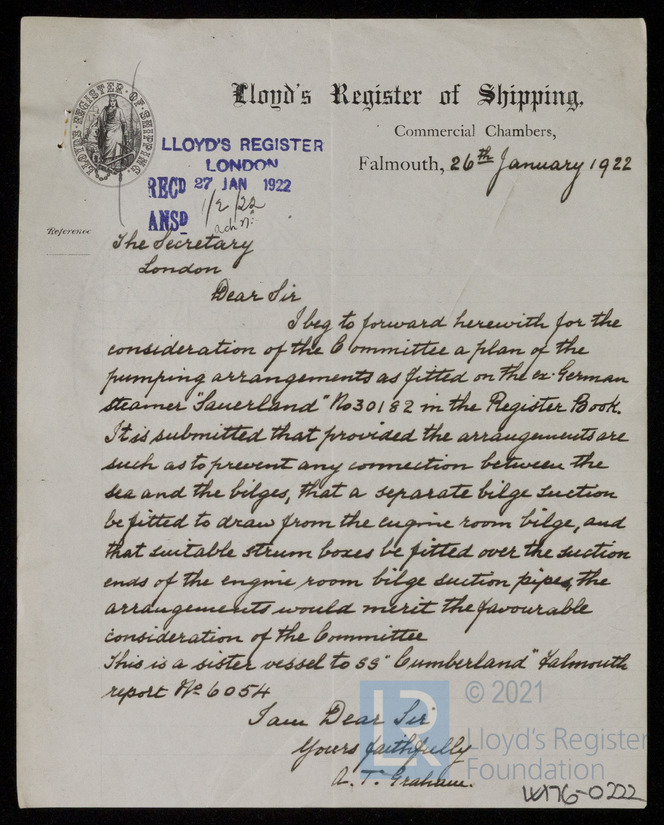 Lloyd's Register of Shipping,
Commercial Chambers,
Falmouth, 26th January 1922
LLOYD'S REGISTER OF SHIPPING.
LLOYD'S REGISTER
LONDON
RECD 27 JAN 1922
ANSD 1/2/22
Reference
The Secretary
London
Dear Sir
I beg to forward herewith for the
consideration of the Committee a plan of the
pumping arrangements as fitted on the ex-German
steamer "Sauerland" No 30182 in the Register Book.
It is submitted that provided the arrangements are
such as to prevent any connection between the
sea and the bilges, that a separate bilge suction
be fitted to draw from the engine room bilge, and
that suitable strum boxes be fitted over the suction
ends of the engine room bilge suction pipes, the
arrangements would merit the favourable
consideration of the Committee
This is a sister vessel to SS "Cumberland" Falmouth
report No 6054
I am Dear Sir
Yours faithfully
A. T. Graham.
LR
© 2021
Lloyd's Register
Foundation
W176-0222